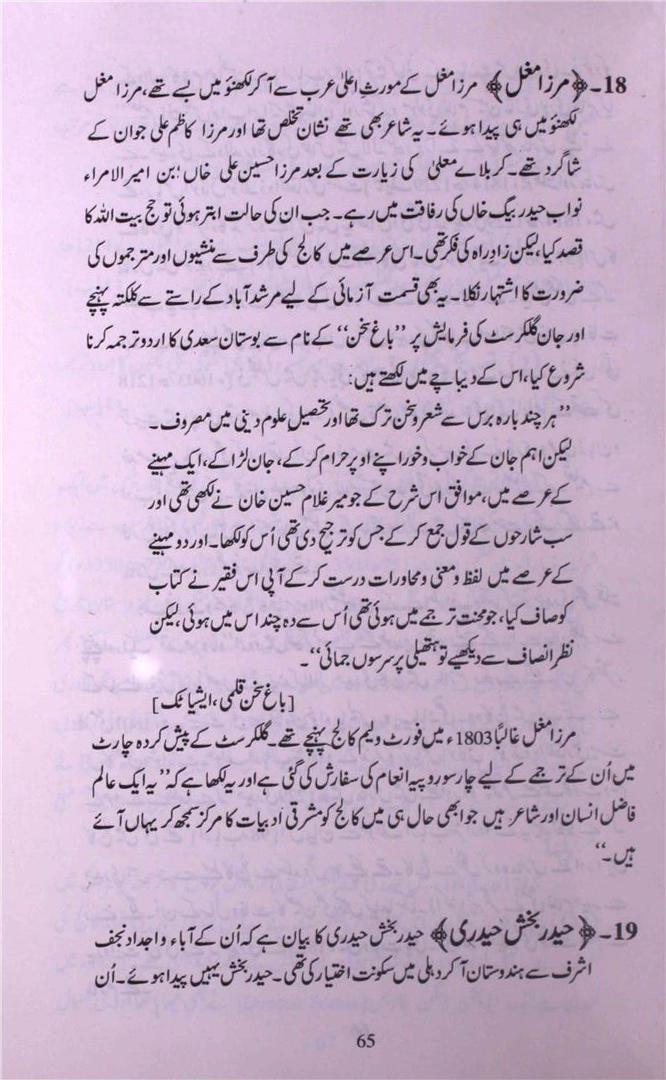 18۔ ﴿مرزا مغل﴾ مرزا مغل کے مورث اعلیٰ عرب سے آ کر لکھنؤ میں بسے تھے، مرزا مغل
لکھنؤ میں ہی پیدا ہوئے۔ یہ شاعر بھی تھے نشان تخلص تھا اور مرزا کاظم علی جوان کے
شاگرد تھے۔ کربلاے معلیٰ کی زیارت کے بعد مرزا حسین علی خاں؛ بن امیر الامراء
نواب حیدر بیگ خاں کی رفاقت میں رہے۔ جب ان کی حالت ابتر ہوئی تو حج بیت اللہ کا
قصد کیا، لیکن زادِ راہ کی فکر تھی۔ اس عرصے میں کالج کی طرف سے منشیوں اور مترجموں کی
ضرورت کا اشتہار نکلا۔ یہ بھی قسمت آزمائی کے لیے مرشد آباد کے راستے سے کلکتہ پہنچے
اور جان گلکرسٹ کی فرمایش پر ”باغ سخن“ کے نام سے بوستان سعدی کا اردو ترجمہ کرنا
شروع کیا، اس کے دیباچے میں لکھتے ہیں:
”ہر چند بارہ برس سے شعر و سخن ترک تھا اور تحصیلِ علوم دینی میں مصروف۔
لیکن اہم جان کے خواب و خور اپنے اوپر حرام کر کے، جان لڑا کے، ایک مہینے
کے عرصے میں، موافق اس شرح کے جو میر غلام حسین خان نے لکھی تھی اور
سب شارحوں کے قول جمع کر کے جس کو ترجیح دی تھی اُس کو لکھا۔ اور دو مہینے
کے عرصے میں لفظ و معنی و محاورات درست کر کے آپی اس فقیر نے کتاب
کو صاف کیا، جو محنت ترجمے میں ہوئی تھی اُس سے دہ چند اس میں ہوئی، لیکن
نظر انصاف سے دیکھیے تو ہتھیلی پر سرسوں جمائی“۔
[باغ سخن قلمی، ایشیا ٹک]
مرزا مغل غالبًا 1803ء میں فورٹ ولیم کالج پہنچے تھے۔ گلکرسٹ کے پیش کردہ چارٹ
میں اُن کے ترجمے کے لیے چار سو روپیہ انعام کی سفارش کی گئی ہے اور یہ لکھا ہے کہ ”یہ ایک عالم
فاضل انسان اور شاعر ہیں جو ابھی حال ہی میں کالج کو مشرقی ادبیات کا مرکز سمجھ کر یہاں آئے
ہیں۔“
19۔ ﴿حیدر بخش حیدری﴾ حیدر بخش حیدری کا بیان ہے کہ اُن کے آباء و اجداد نجف
اشرف سے ہندوستان آ کر دہلی میں سکونت اختیار کی تھی۔ حیدر بخش یہیں پیدا ہوئے۔ اُن
65